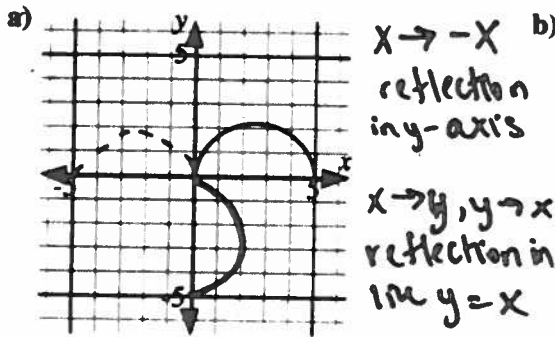 a)
y
5
x
-5
5
-5
x → -x
reflection
in y-axis
x → y, y → x
reflection in
line y = x
b)